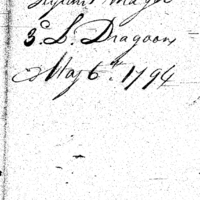 3d L. Dragoons
May 6th 1794